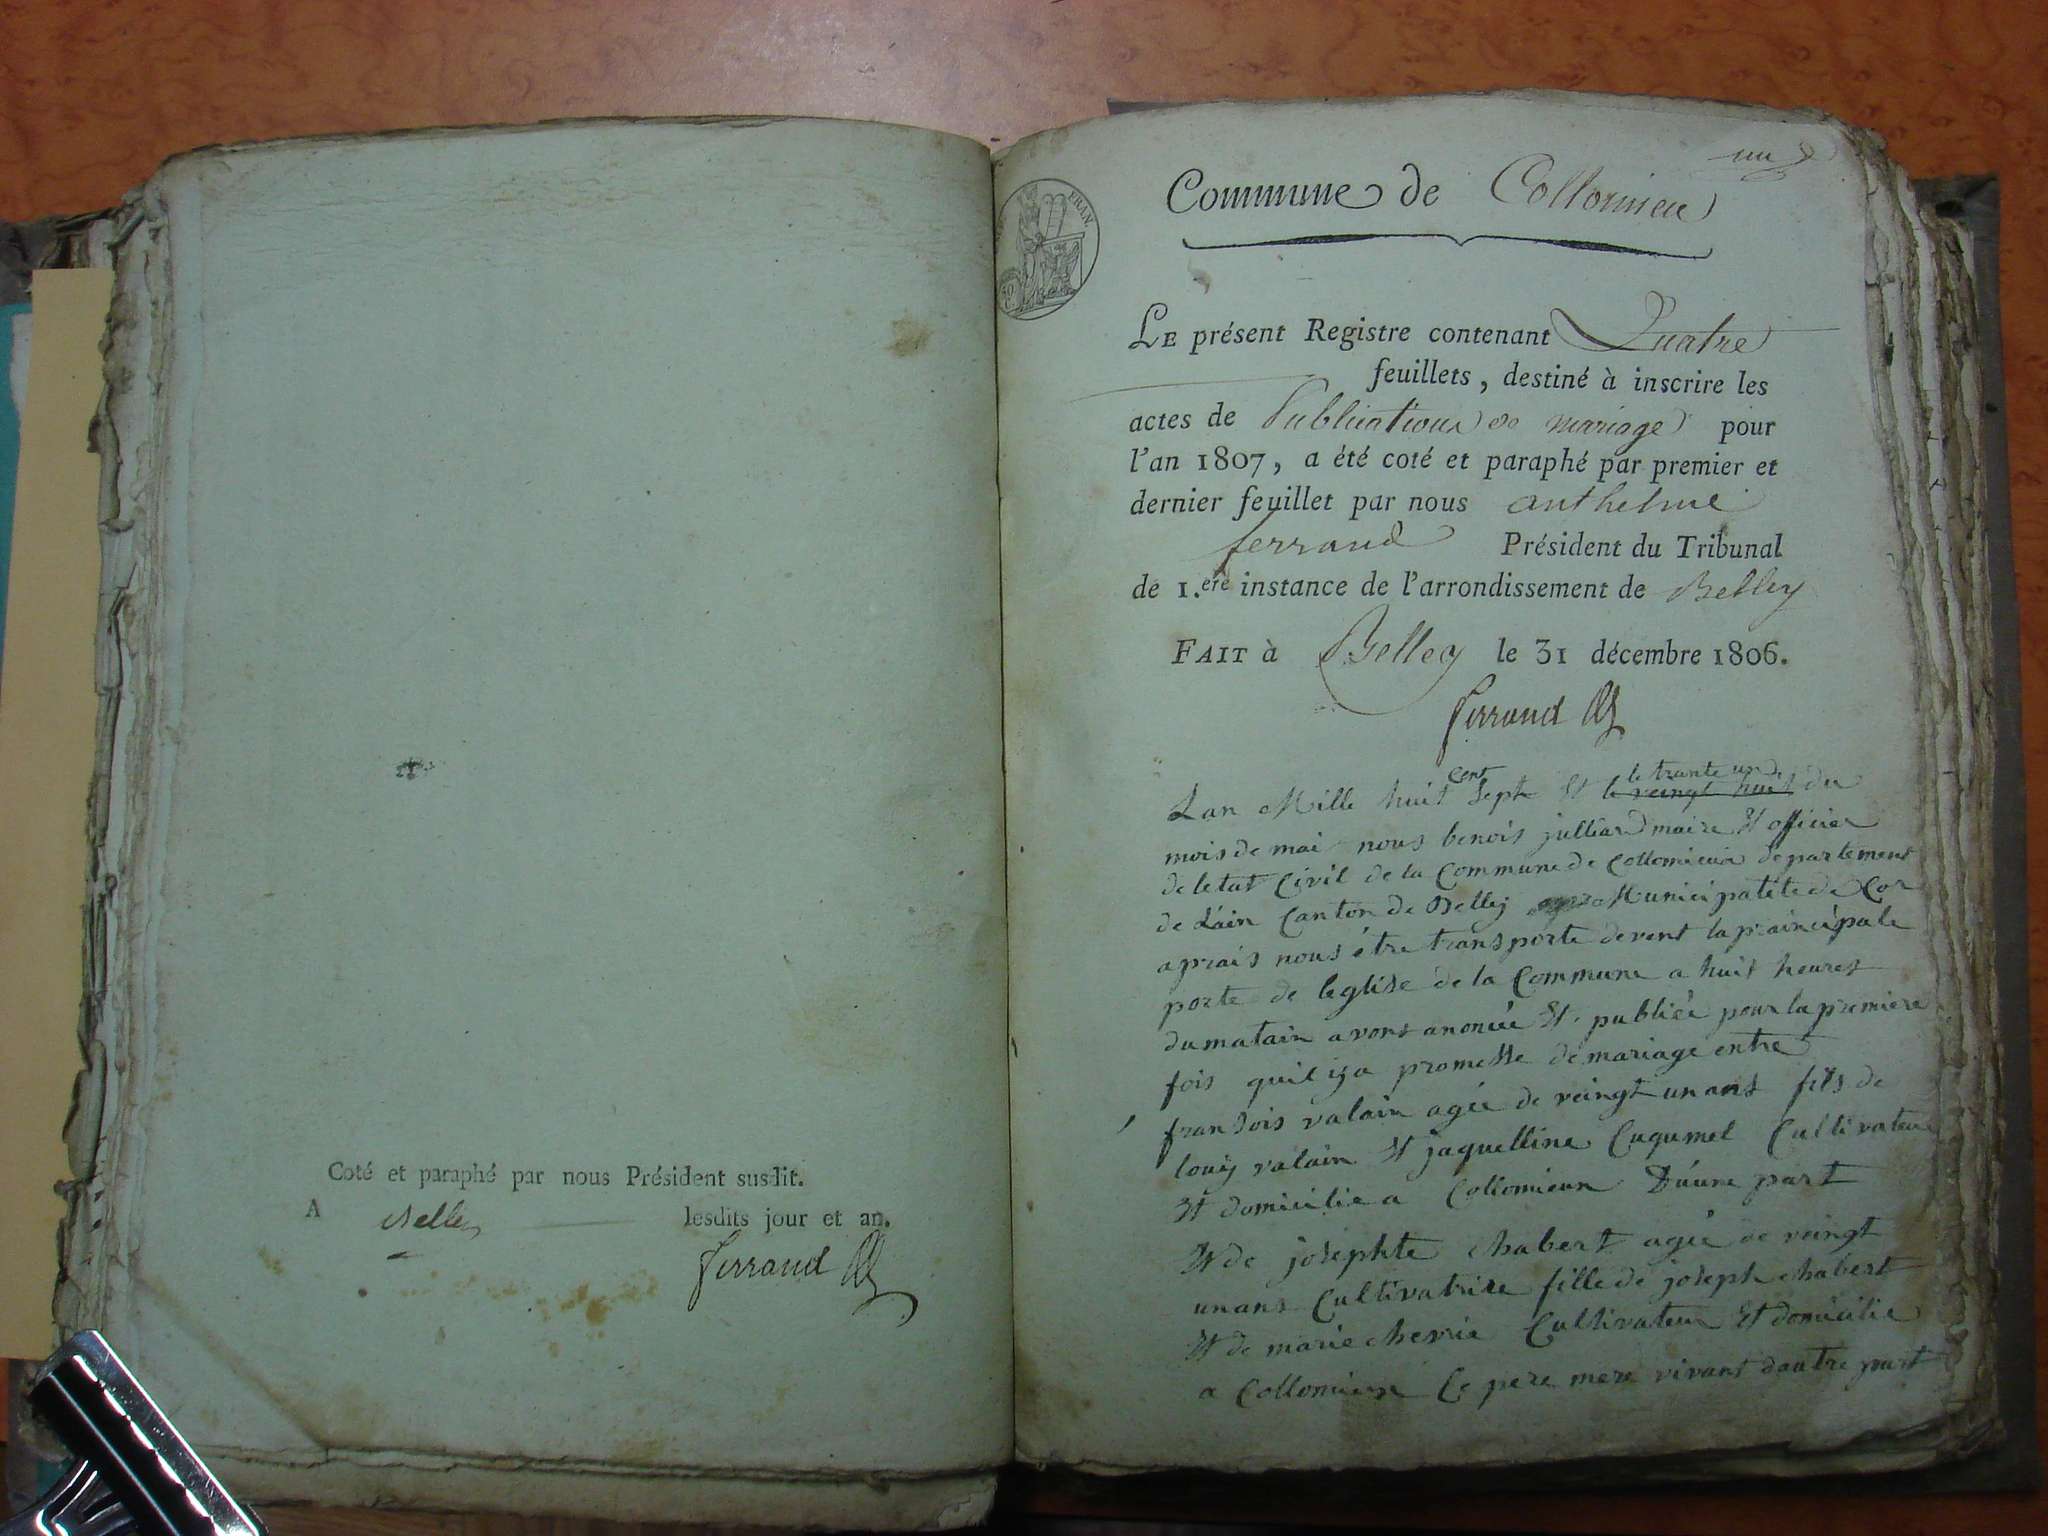 Coté et paraphé par nous Président susdit.
A Belley lesdits jour et an.
Ferrand
un
FRAN.
Commune de Collomieu
LE présent Registre contenant Quatre
feuillets, destiné à inscrire les
actes de Publications de mariage pour
l'an 1807, a été coté et paraphé par premier et
dernier feuillet par nous anthelme
ferrand Président du Tribunal
de 1.ere instance de l'arrondissement de Belley
FAIT à Belley le 31 décembre 1806.
Ferrand
cent le trante un
Lan Mille huit Sept Et le veingt huit du
mois de mai nous benois julliard maire Et officier
de letat Civil de la Commune de Collomieux departement
de Lain Canton de Belley Municipatité de Cor
aprais nous être transporte devent la praincipale
porte de leglise de la Commune a huit heures
du matain avons anoncée Et publiée pour la premiere
fois quil iya promesse de mariage entre
fransois valain agée de veingt un ans fils de
louis valain Et jaquelline Cuqumel Cultivateur
Et domicilie a Collomieux Dúúne part
Et de josephte chabert agée de veingt
un ans Cultivatrice fille de joseph chabert
Et de marie chevrie Cultivateur Et domicilie
a Collomieux Ce pere mere vivant dautre part